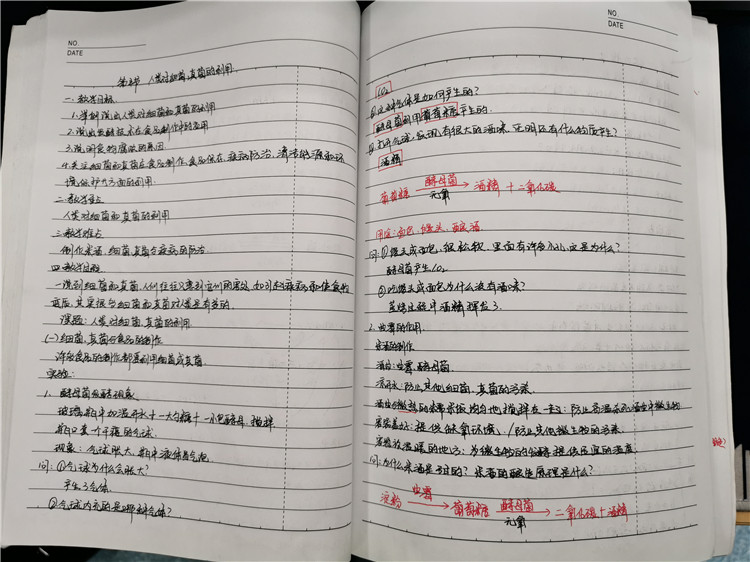 NO.
DATE
第五节 人类对细菌、真菌的利用
一. 教学目标
1. 举例说出人类对细菌和真菌的利用
2. 说出发酵技术在食品制作中的应用
3. 说明食物腐败的原因
4. 关注细菌和真菌在食品制作、食品保存、疾病防治、清洁能源和环
境保护方面的利用.
二. 教学重点
人类对细菌和真菌的利用
三. 教学难点
制作米酒, 细菌、真菌与疾病的防治
四. 教学过程
一说到细菌和真菌, 人们往往只想到它们的腐败, 如引起疾病和使食物
变质, 其实很多细菌和真菌对人类是有益的.
课题: 人类对细菌、真菌的利用
(一) 细菌、真菌与食品的制作
许多食品的制作都要利用细菌或真菌
实验:
1. 酵母菌发酵现象
玻璃瓶中加温开水+一大勺糖+一小包酵母, 搅拌
瓶口套一个干瘪的气球.
现象: 气球胀大, 瓶中液体冒气泡
问: ①气球为什么会胀大?
产生了气体.
②气球内充的是哪种气体?
NO.
DATE
CO₂
③这种气体是如何产生的?
酵母菌利用葡萄糖产生的.
④打开气球, 发现有很大的酒味, 证明还有什么物质产生?
酒精
葡萄糖 酵母菌 无氧 → 酒精+二氧化碳
用途: 面包、馒头、酿酒
问: ①馒头或面包, 很松软, 里面有许多小孔, 这是为什么?
酵母菌产生CO₂
②吃馒头或面包为什么没有酒味?
蒸烤过程中酒精挥发了.
2. 曲霉的作用.
米酒的制作
酒曲: 曲霉、酵母菌
凉开水: 防止其他细菌、真菌的污染
问: 为什么米酒是甜的? 米酒的酿造原理是什么?
淀粉 曲霉 → 葡萄糖 酵母菌 无氧 → 二氧化碳+酒精